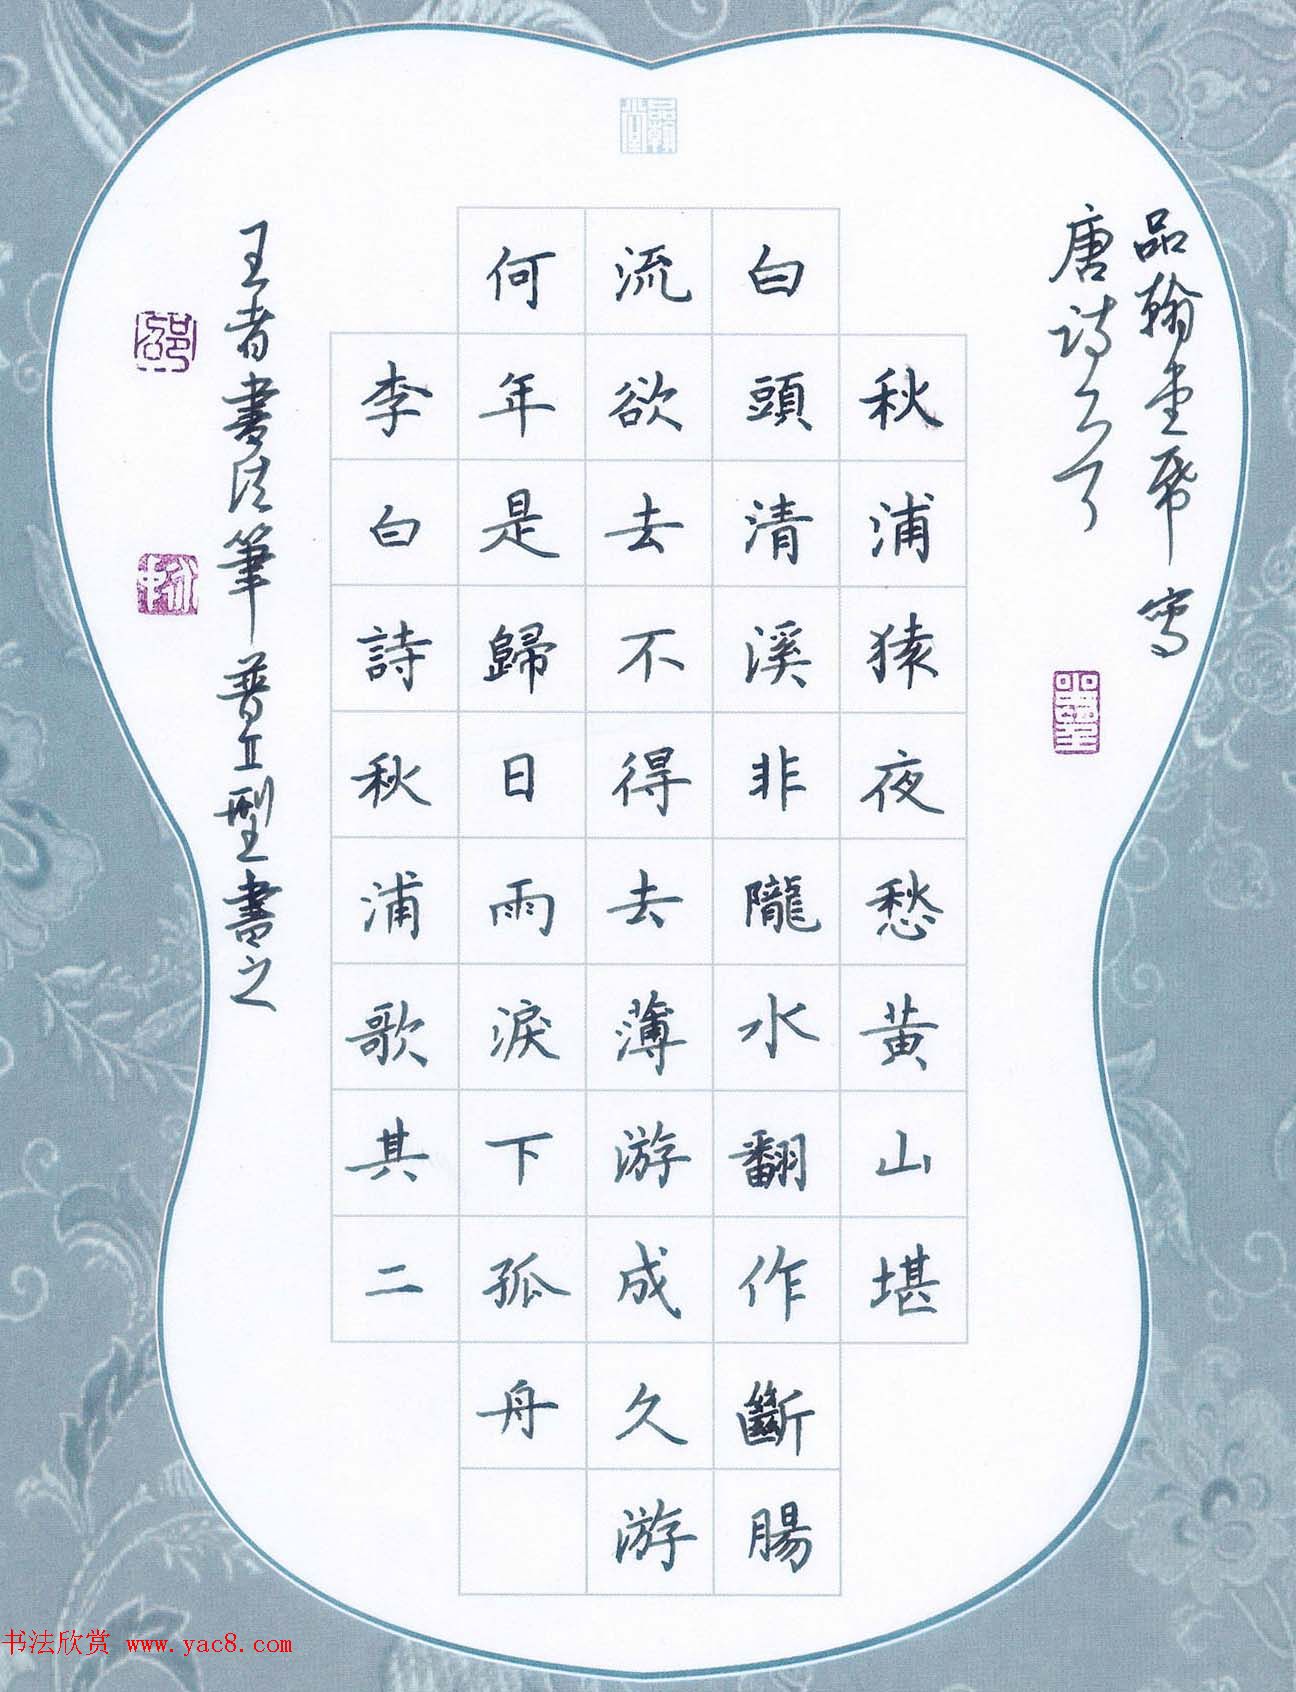 品翰堂承寫
唐詩
秋浦猿夜愁黃山堪
白頭清溪非隴水翻作斷腸
流欲去不得去薄游成久游
何年是歸日雨淚下孤舟
李白詩秋浦歌其二
王者書法筆普II型書之
书法欣赏 www.yac8.com